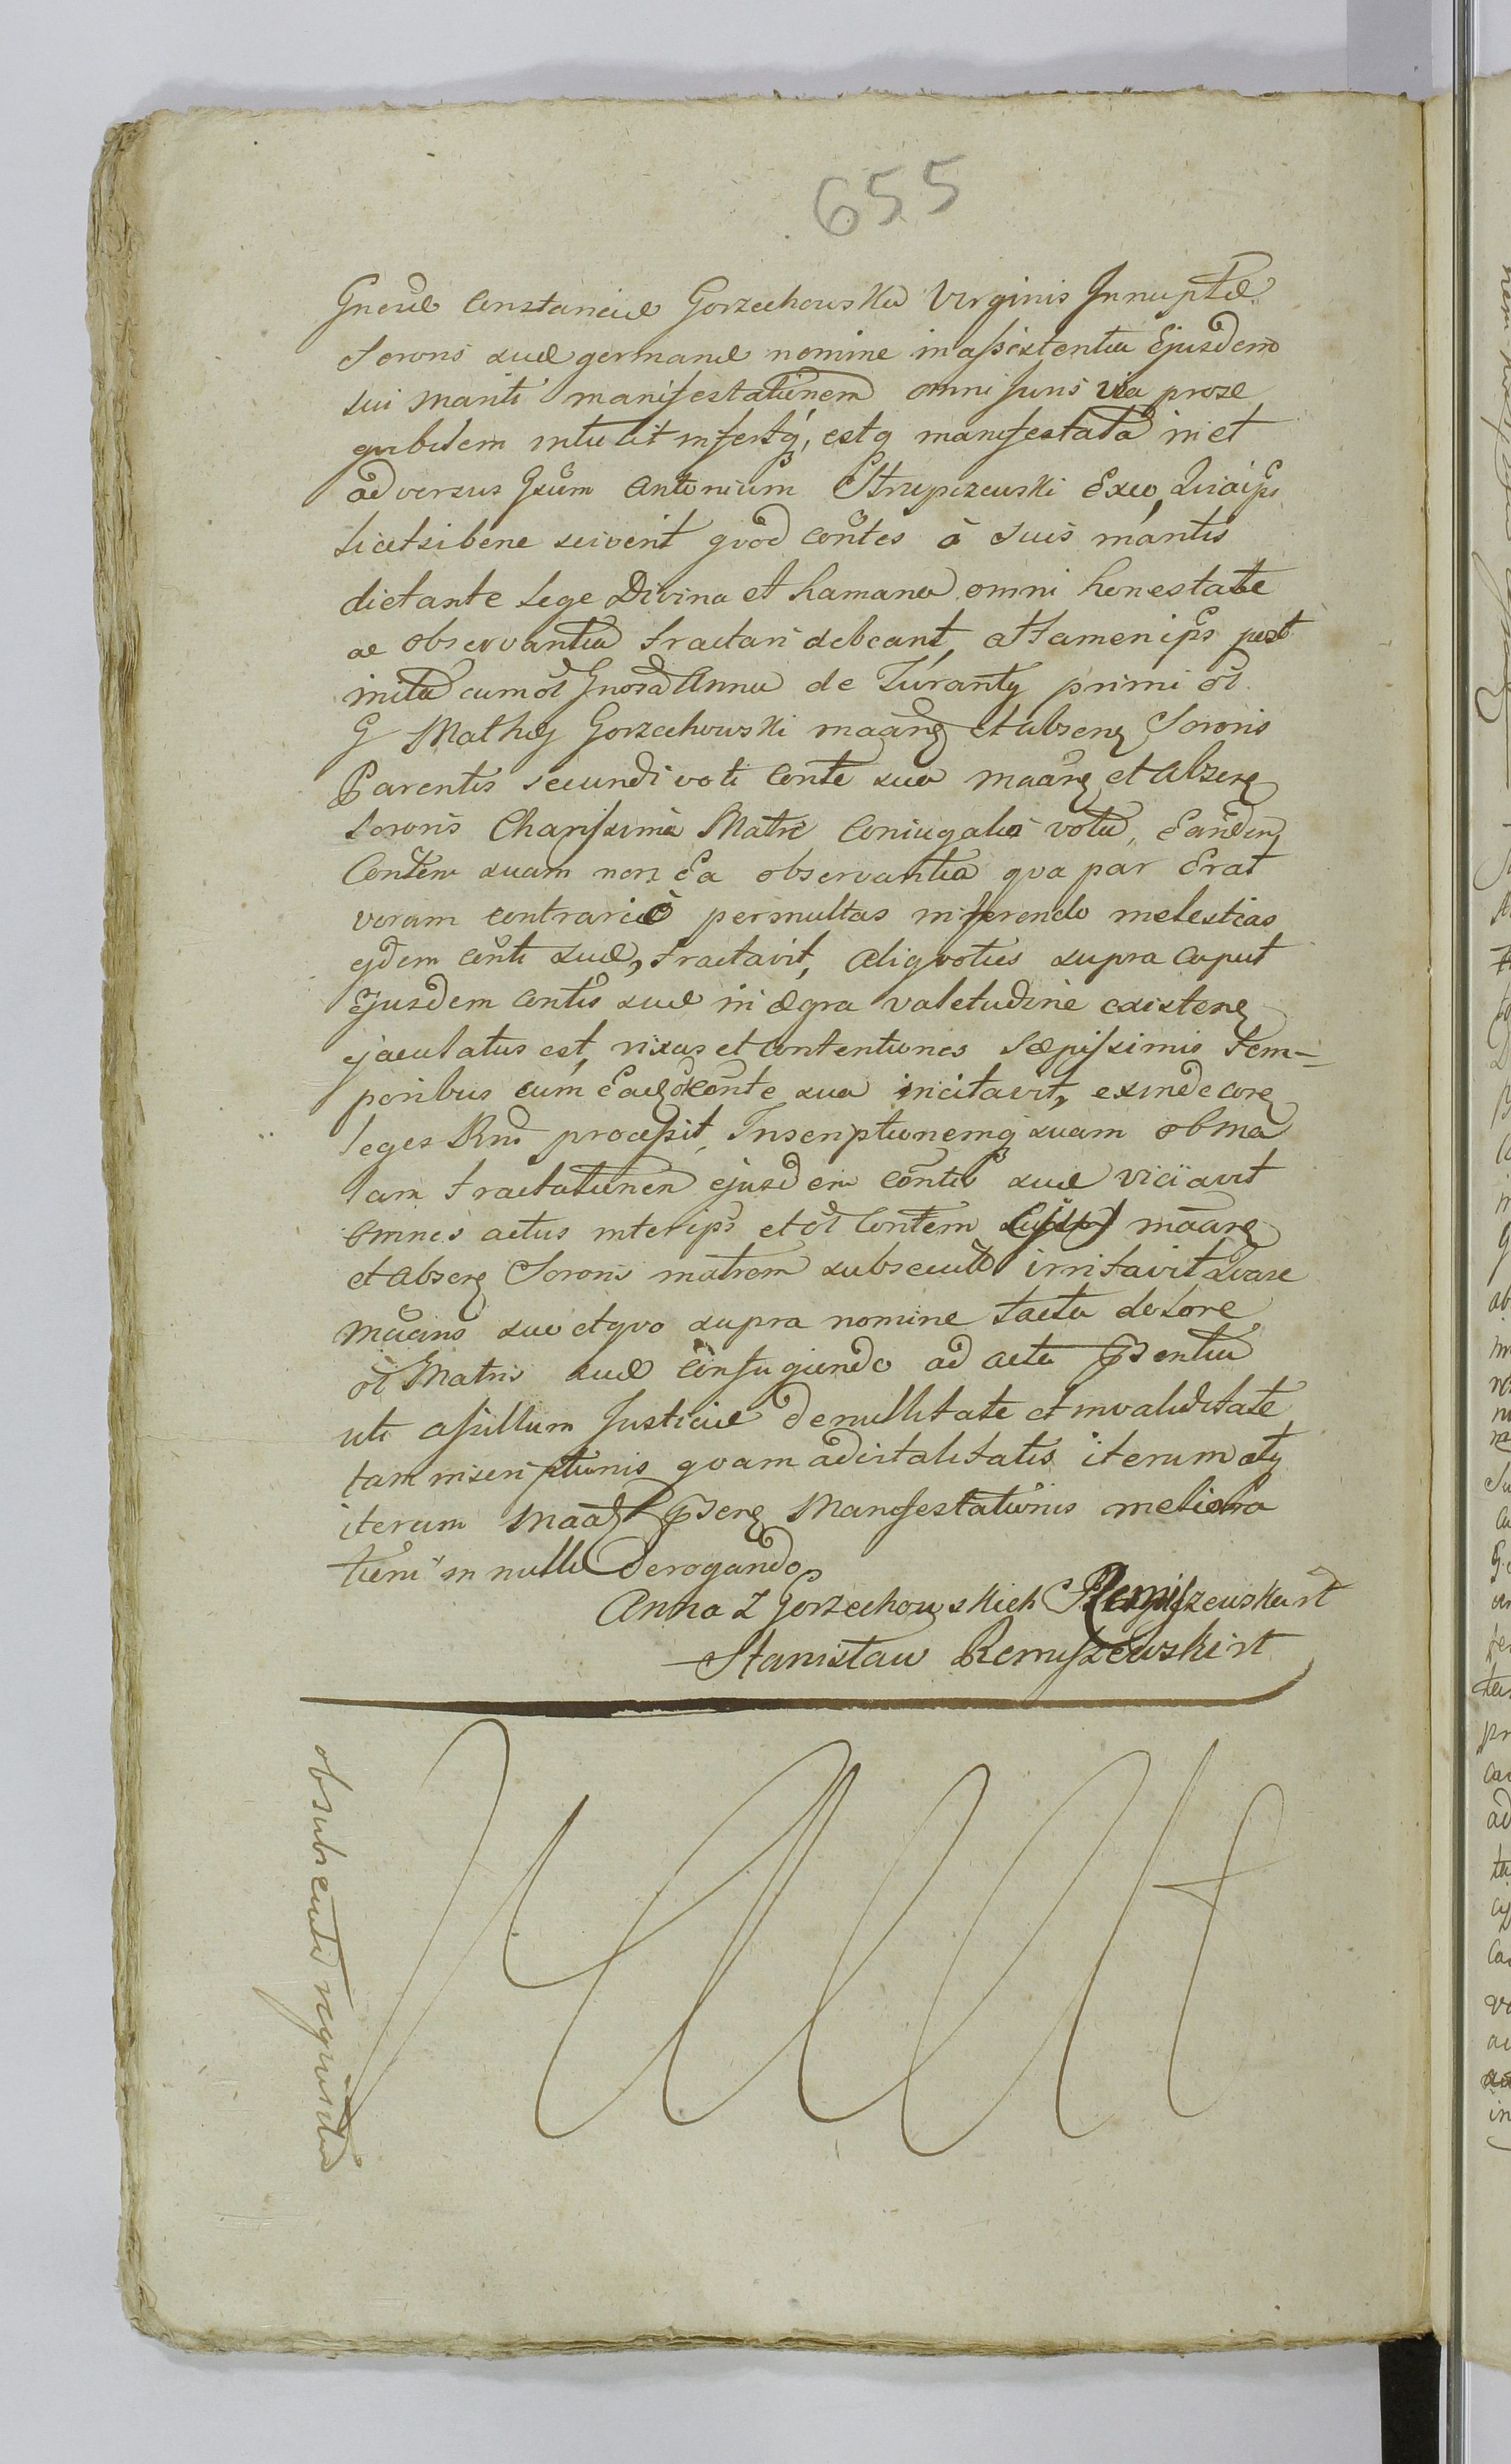 655
Gnosæ Constanciæ Gorzechowska Virginis Innuptæ
Sororis suæ germanæ nomine in assistentia Ejusdem
sui mariti manifestationem omni Juris via prose
quibusdem intulit infertq, estq manifestata in et
adversus Gsum Antonium Strupczewski Exeo, Quia ips
licet sibene sciverit qvod Contes à suis maritis
dictante Lege Divina et humana omni honestate
ac observantia tractari debeant, attamen ips post
inita cum ol Gnosa Anna de Turanty primi ol
G Mathej Gorzechowski maãng et absenz Sororis
Parentis secundi voti Conte sua maãng et absenz
sororis Charissima Matre Coniugalia vota, Eanden
Contem suam non Ea observantia qva par Erat
verum contrario permultas inferendo molestias
ejdem Conti suæ, tractavit, aliqvoties supra caput
Ejusdem Contis suæ in ægra valetudine existenz
ejaculatus est, rixas et contentiones sæpissimis tem-
poribus cum Eadz Conte sua incitavit, exinde conz
leges Rni processit, Inscriptionemq suam ob ma
lam tractationem ejusdem Contis suæ viciavit
omnes actus inter ips et ol Contem maãng
et absenz Sororis matrem subsecutos irritavit Qvare
maãns suo et qvo supra nomine tacta dolore
ol Matris suæ confugiendo ad acta psentia
uti assillum Justiciæ de nullitate et invaliditate
tam inscriptionis qvam advitalitatis iterum atq
iterum maãz psenz Manifestationis meliora
tioni in nullo derogando
Anna z Gorzechowskich Remiszewska rt
Stanisław Remiszewski rt
ob subsecuta reqvisita